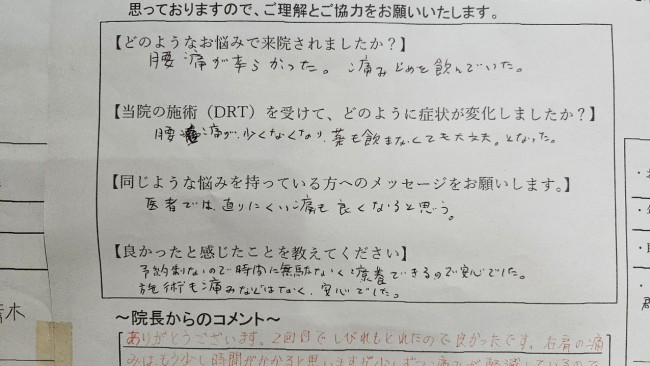 思っておりますので、ご理解とご協力をお願いいたします。
【どのようなお悩みで来院されましたか?】
腰痛が辛らかった。痛み止めを飲んでいた。
【当院の施術(DRT)を受けて、どのように症状が変化しましたか?】
腰痛が少くなくなり、薬も飲まなくても大丈夫。となった。
【同じような悩みを持っている方へのメッセージをお願いします。】
医者では直りにくい痛も良くなると思う。
【良かったと感じたことを教えてください】
予約制なので時間に無駄なく療養できるので安心でした。
施術も痛みなどはなく、安心でした。
~院長からのコメント~
ありがとうございます。2回目でしびれもとれたので良かったです。右肩の痛
みはもう少し時間がかかると思いますが少しずつ痛みが軽減しているので